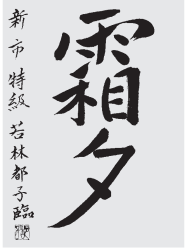 霜夕
新市 特級 若林都子臨